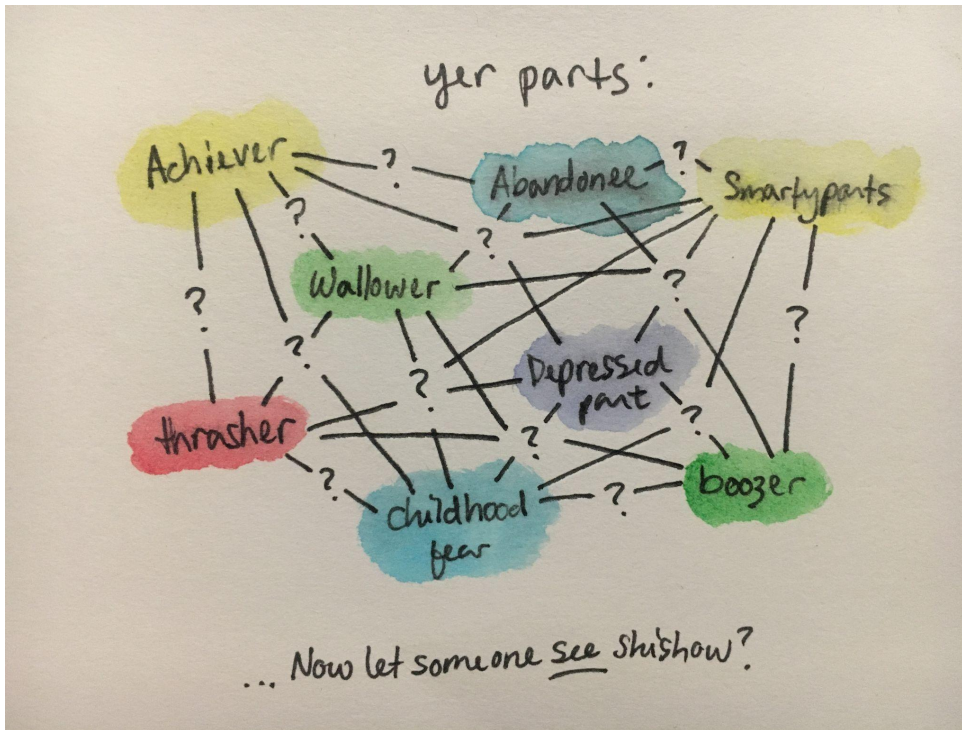 yer parts:
Achiever
?
Abandonee
?
Smartyparts
?
?
Wallower
?
?
?
?
?
Depressed
part
?
thrasher
?
?
boozer
?
childhood
fear
?
... Now let someone see shishow?